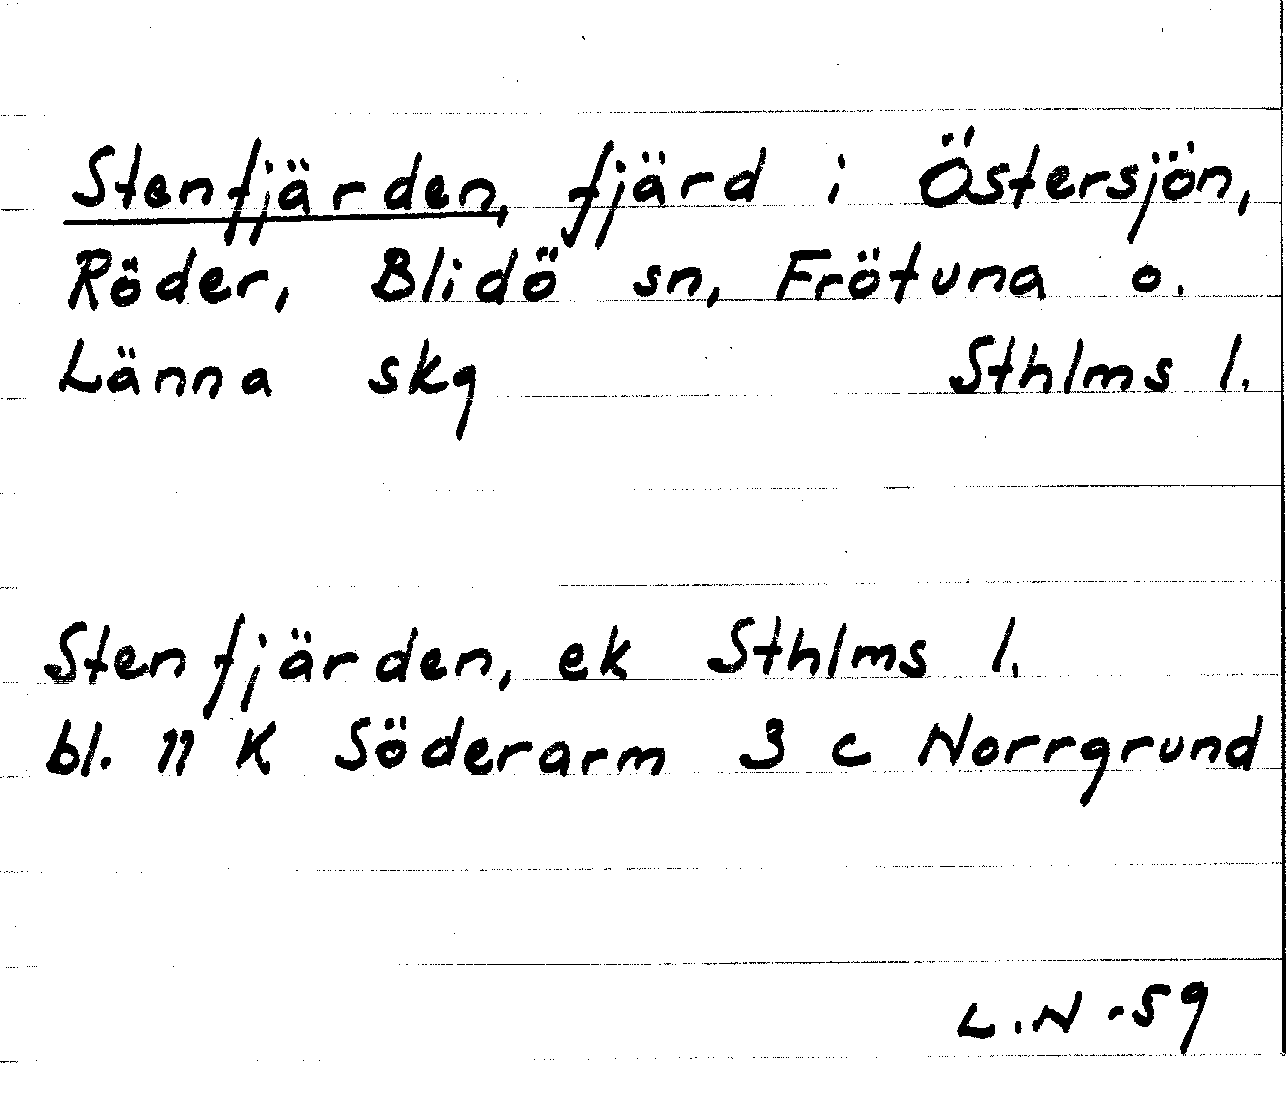 Stenfjärden, fjärd i Östersjön,
Röder, Blidö sn, Frötuna o.
Länna skg Sthlms l.
Stenfjärden, ek Sthlms l.
bl. 11 K Söderarm 3 c Norrgrund
L.N -59